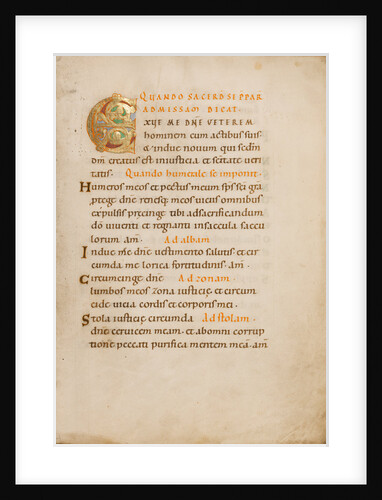 QUANDO SACERD SE PPAR
AD MISSAM DICAT.
EXUE ME DNE VETEREM
hominem cum actibus suis.
& indue novum qui scdm
dm creatus est iniusticia et scitate veri
tatis. Quando humerale se imponit.
Humeros meos et pectus meum sps sci gra
protege dne renesq; meos viciis omnibus
expulsis precinge tibi ad sacrificandum
do viventi et regnanti insaecula saecu
lorum am. Ad albam
Indue me dne vestimento salutis et cir
cumda me lorica fortitudinis. am.
Circumcinge dne Ad zonam.
lumbos meos zona iusticie et circum
cide vicia cordis et corporis mei.
Stola iusticie circumda Ad stolam.
dne cervicem meam. et ab omni corrup
tione peccati purifica mentem mea. am